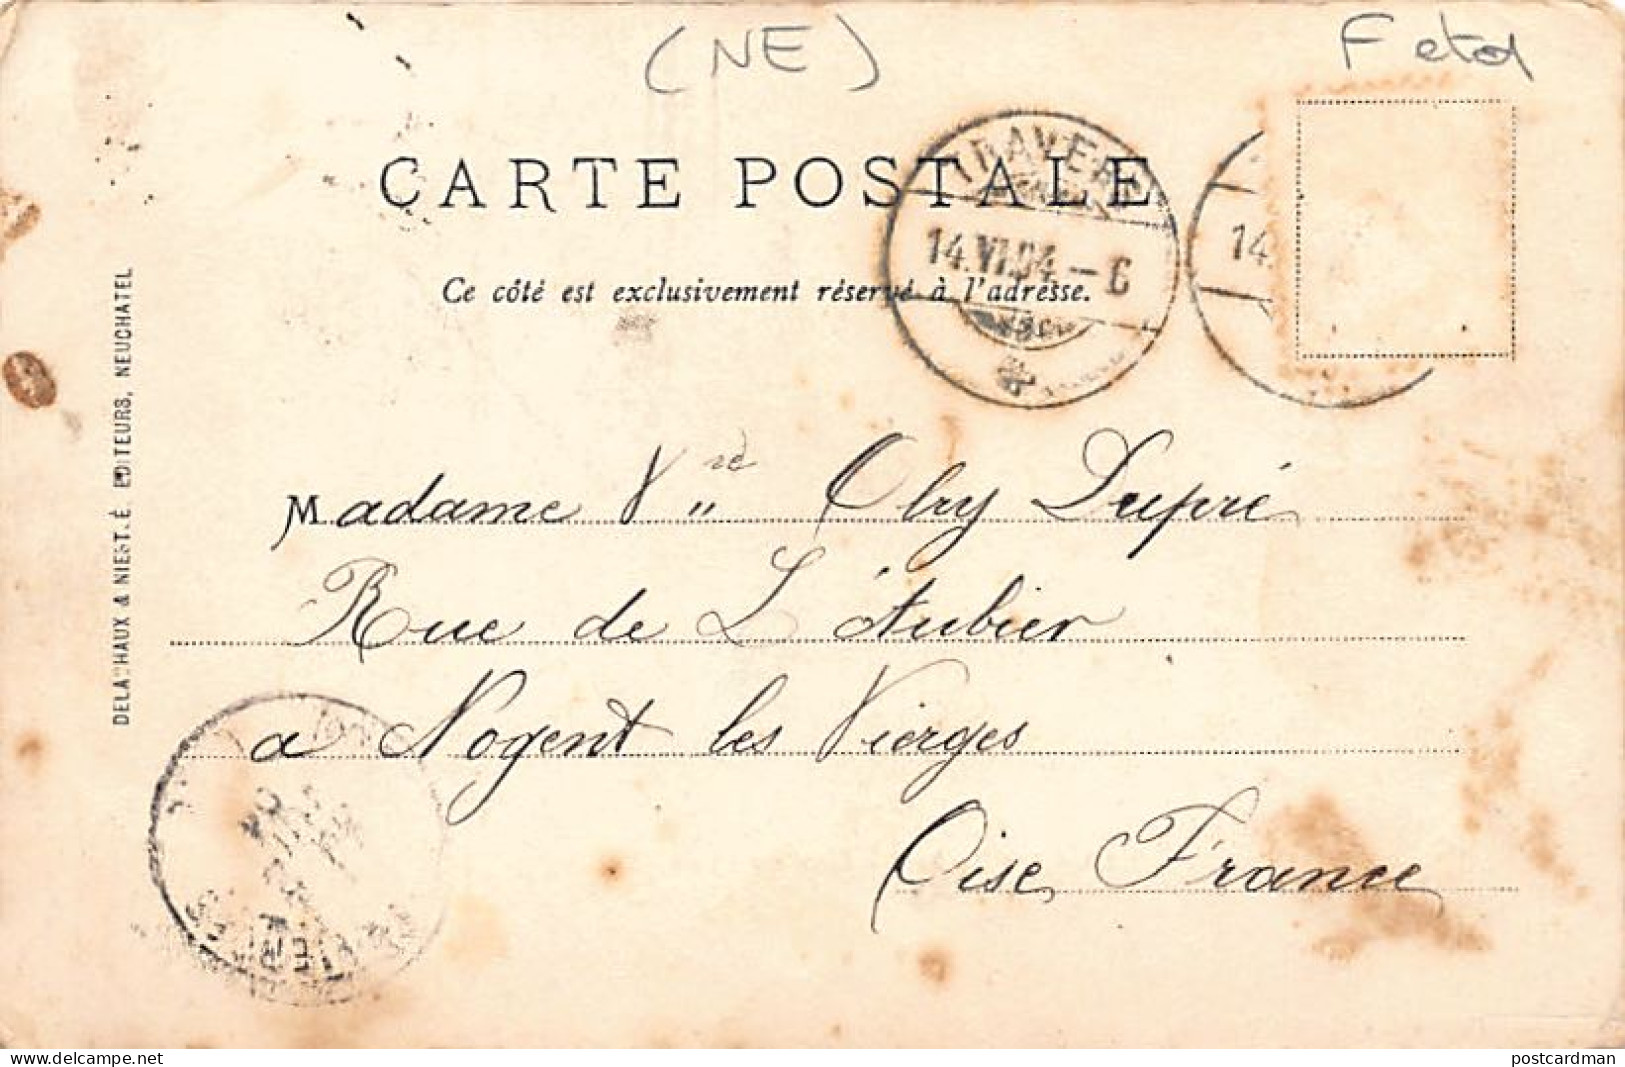 (NE)
CARTE POSTALE
TRAVERS
14.VI.04.-6
14.
Ce côté est exclusivement réservé à l'adresse.
DELACHAUX & NIESTLÉ EDITEURS, NEUCHATEL
Madame Vve Obry Dupré
Rue de L'étubier
a Nogent les Vierges
Oise France
delcampe.net
postcardman